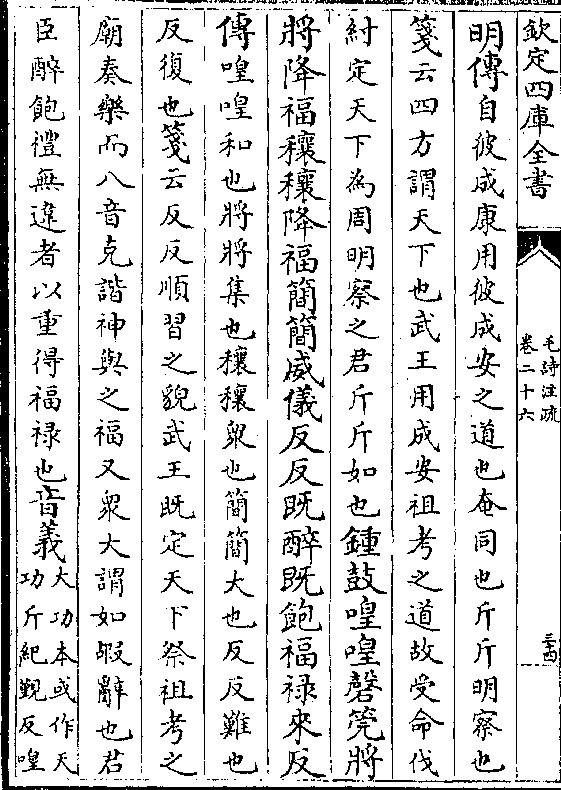 欽定四庫全書
毛詩注疏
卷二十六
三四
明傳自彼成康用彼成安之道也奄同也斤斤明察也
箋云四方謂天下也武王用成安祖考之道故受命伐
紂定天下為周明察之君斤斤如也鍾鼓喤喤磬筦將
將降福穰穰降福簡簡威儀反反既醉既飽福祿來反
傳喤喤和也將將集也穰穰衆也簡簡大也反反難也
反復也箋云反反順習之貌武王既定天下祭祖考之
廟奏樂而八音克諧神與之福又衆大謂如嘏辭也君
臣醉飽禮無違者以重得福祿也音義
大功本或作天
功斤紀覲反喤